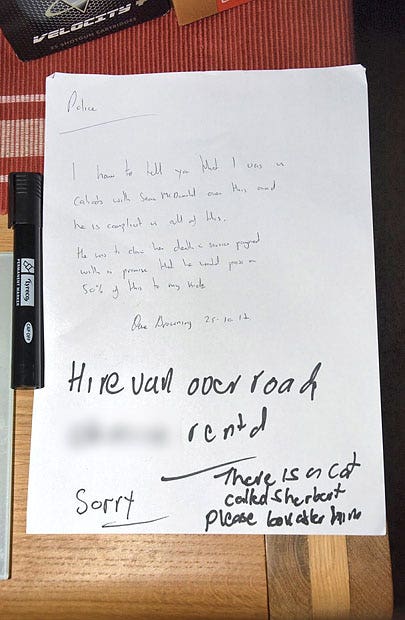 VELOCITY
25 SHOTGUN CARTRIDGES
Police
I have to tell you that I was in
cahoots with Sean McDonald over this and
he is complicit in all of this.
He was to claim her death in service payment
with a promise that he would pass on
50% of this to my kids
PERMANENT MARKER
Hire van over road
rentd
There is a cat
called sherbert
please look after him
Sorry